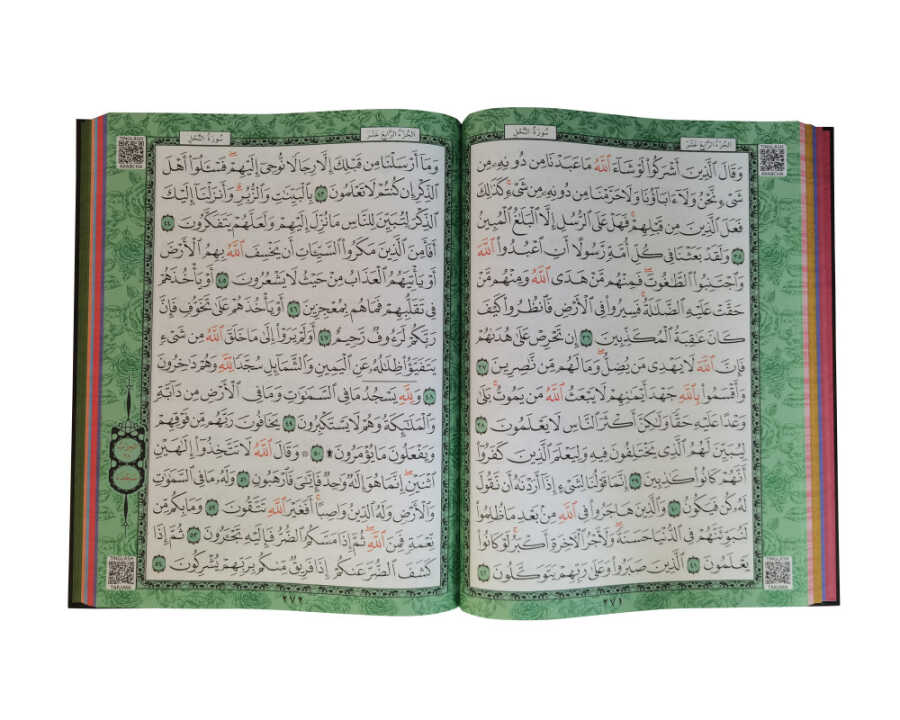 الجزء الرابع عشر
سورة النحل
وَقَالَ ٱلَّذِينَ أَشۡرَكُواْ لَوۡ شَآءَ ٱللَّهُ مَا عَبَدۡنَا مِن دُونِهِۦ مِن
شَيۡءٖ نَّحۡنُ وَلَآ ءَابَآؤُنَا وَلَا حَرَّمۡنَا مِن دُونِهِۦ مِن شَيۡءٖۚ كَذَٰلِكَ
فَعَلَ ٱلَّذِينَ مِن قَبۡلِهِمۡۚ فَهَلۡ عَلَى ٱلرُّسُلِ إِلَّا ٱلۡبَلَٰغُ ٱلۡمُبِينُ
٣٥ وَلَقَدۡ بَعَثۡنَا فِي كُلِّ أُمَّةٖ رَّسُولًا أَنِ ٱعۡبُدُواْ ٱللَّهَ
وَٱجۡتَنِبُواْ ٱلطَّٰغُوتَۖ فَمِنۡهُم مَّنۡ هَدَى ٱللَّهُ وَمِنۡهُم مَّنۡ
حَقَّتۡ عَلَيۡهِ ٱلضَّلَٰلَةُۚ فَسِيرُواْ فِي ٱلۡأَرۡضِ فَٱنظُرُواْ كَيۡفَ
كَانَ عَٰقِبَةُ ٱلۡمُكَذِّبِينَ ٣٦ إِن تَحۡرِصۡ عَلَىٰ هُدَىٰهُمۡ
فَإِنَّ ٱللَّهَ لَا يَهۡدِي مَن يُضِلُّۖ وَمَا لَهُم مِّن نَّٰصِرِينَ ٣٧
وَأَقۡسَمُواْ بِٱللَّهِ جَهۡدَ أَيۡمَٰنِهِمۡ لَا يَبۡعَثُ ٱللَّهُ مَن يَمُوتُۚ بَلَىٰ
وَعۡدًا عَلَيۡهِ حَقّٗا وَلَٰكِنَّ أَكۡثَرَ ٱلنَّاسِ لَا يَعۡلَمُونَ ٣٨
لِيُبَيِّنَ لَهُمُ ٱلَّذِي يَخۡتَلِفُونَ فِيهِ وَلِيَعۡلَمَ ٱلَّذِينَ كَفَرُوٓاْ
أَنَّهُمۡ كَانُواْ كَٰذِبِينَ ٣٩ إِنَّمَا قَوۡلُنَا لِشَيۡءٍ إِذَآ أَرَدۡنَٰهُ أَن نَّقُولَ
لَهُۥ كُن فَيَكُونُ ٤٠ وَٱلَّذِينَ هَاجَرُواْ فِي ٱللَّهِ مِنۢ بَعۡدِ مَا ظُلِمُواْ
لَنُبَوِّئَنَّهُمۡ فِي ٱلدُّنۡيَا حَسَنَةٗۖ وَلَأَجۡرُ ٱلۡأٓخِرَةِ أَكۡبَرُۚ لَوۡ كَانُواْ
يَعۡلَمُونَ ٤١ ٱلَّذِينَ صَبَرُواْ وَعَلَىٰ رَبِّهِمۡ يَتَوَكَّلُونَ ٤٢
٢٧١
الجزء الرابع عشر
سورة النحل
TINGLASH
ARABCHA
وَمَآ أَرۡسَلۡنَا مِن قَبۡلِكَ إِلَّا رِجَالٗا نُّوحِيٓ إِلَيۡهِمۡۖ فَسۡـَٔلُوٓاْ أَهۡلَ
ٱلذِّكۡرِ إِن كُنتُمۡ لَا تَعۡلَمُونَ ٤٣ بِٱلۡبَيِّنَٰتِ وَٱلزُّبُرِۗ وَأَنزَلۡنَآ إِلَيۡكَ
ٱلذِّكۡرَ لِتُبَيِّنَ لِلنَّاسِ مَا نُزِّلَ إِلَيۡهِمۡ وَلَعَلَّهُمۡ يَتَفَكَّرُونَ ٤٤
أَفَأَمِنَ ٱلَّذِينَ مَكَرُواْ ٱلسَّيِّـَٔاتِ أَن يَخۡسِفَ ٱللَّهُ بِهِمُ ٱلۡأَرۡضَ
أَوۡ يَأۡتِيَهُمُ ٱلۡعَذَابُ مِنۡ حَيۡثُ لَا يَشۡعُرُونَ ٤٥ أَوۡ يَأۡخُذَهُمۡ
فِي تَقَلُّبِهِمۡ فَمَا هُم بِمُعۡجِزِينَ ٤٦ أَوۡ يَأۡخُذَهُمۡ عَلَىٰ تَخَوُّفٖ فَإِنَّ
رَبَّكُمۡ لَرَءُوفٞ رَّحِيمٌ ٤٧ أَوَلَمۡ يَرَوۡاْ إِلَىٰ مَا خَلَقَ ٱللَّهُ مِن شَيۡءٖ
يَتَفَيَّؤُاْ ظِلَٰلُهُۥ عَنِ ٱلۡيَمِينِ وَٱلشَّمَآئِلِ سُجَّدٗا لِّلَّهِ وَهُمۡ دَٰخِرُونَ
٤٨ وَلِلَّهِۤ يَسۡجُدُۤ مَا فِي ٱلسَّمَٰوَٰتِ وَمَا فِي ٱلۡأَرۡضِ مِن دَآبَّةٖ
وَٱلۡمَلَٰٓئِكَةُ وَهُمۡ لَا يَسۡتَكۡبِرُونَ ٤٩ يَخَافُونَ رَبَّهُم مِّن فَوۡقِهِمۡ
وَيَفۡعَلُونَ مَا يُؤۡمَرُونَ۩ ٥٠ ۞ وَقَالَ ٱللَّهُ لَا تَتَّخِذُوٓاْ إِلَٰهَيۡنِ
ٱثۡنَيۡنِۖ إِنَّمَا هُوَ إِلَٰهٞ وَٰحِدٞ فَإِيَّٰيَ فَٱرۡهَبُونِ ٥١ وَلَهُۥ مَا فِي ٱلسَّمَٰوَٰتِ
وَٱلۡأَرۡضِ وَلَهُ ٱلدِّينُ وَاصِبًاۚ أَفَغَيۡرَ ٱللَّهِ تَتَّقُونَ ٥٢ وَمَا بِكُم مِّن
نِّعۡمَةٖ فَمِنَ ٱللَّهِۖ ثُمَّ إِذَا مَسَّكُمُ ٱلضُّرُّ فَإِلَيۡهِ تَجۡـَٔرُونَ ٥٣ ثُمَّ إِذَا
كَشَفَ ٱلضُّرَّ عَنكُمۡ إِذَا فَرِيقٞ مِّنكُم بِرَبِّهِمۡ يُشۡرِكُونَ ٥٤
٢٧٢